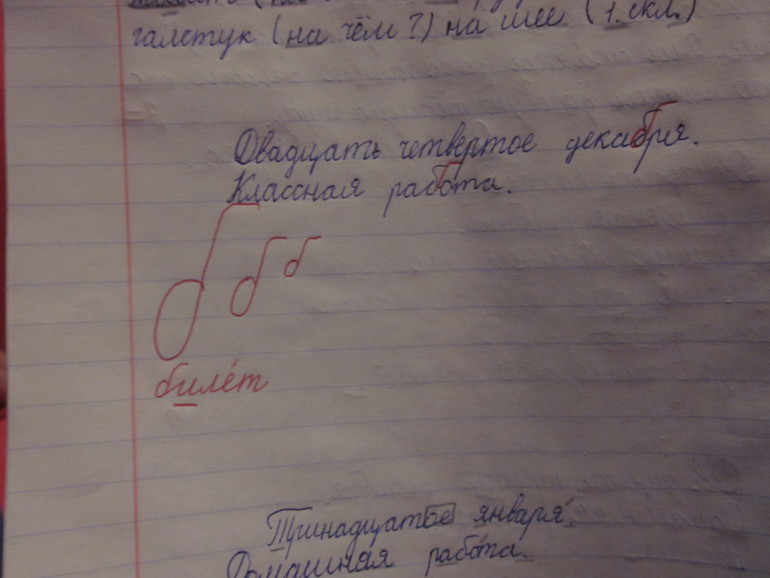 галстук (на чём?) на шее (1. скл.)
Двадцать четвертое декабря.
Классная работа.
б б б
билéт
Тринадцатое января.
Домашняя работа.